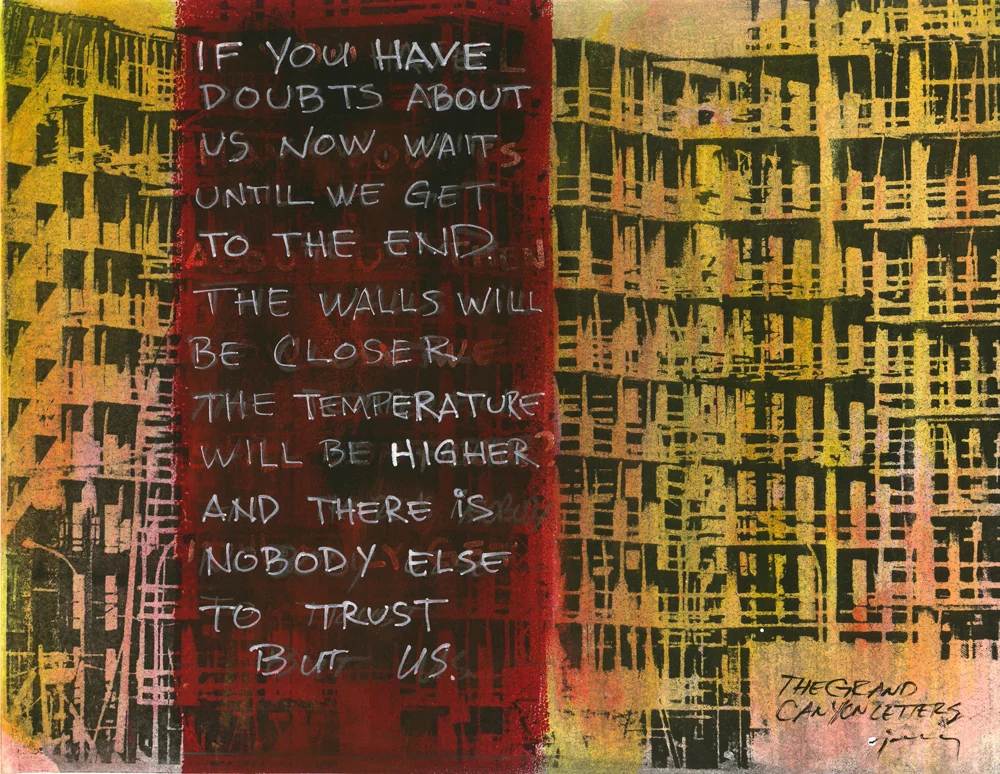 IF YOU HAVE
DOUBTS ABOUT
US NOW, WAIT
UNTIL WE GET
TO THE END.
THE WALLS WILL
BE CLOSER.
THE TEMPERATURE
WILL BE HIGHER
AND THERE iS
NOBODY ELSE
TO TRUST
BUT US.
THE GRAND
CANYON LETTERS